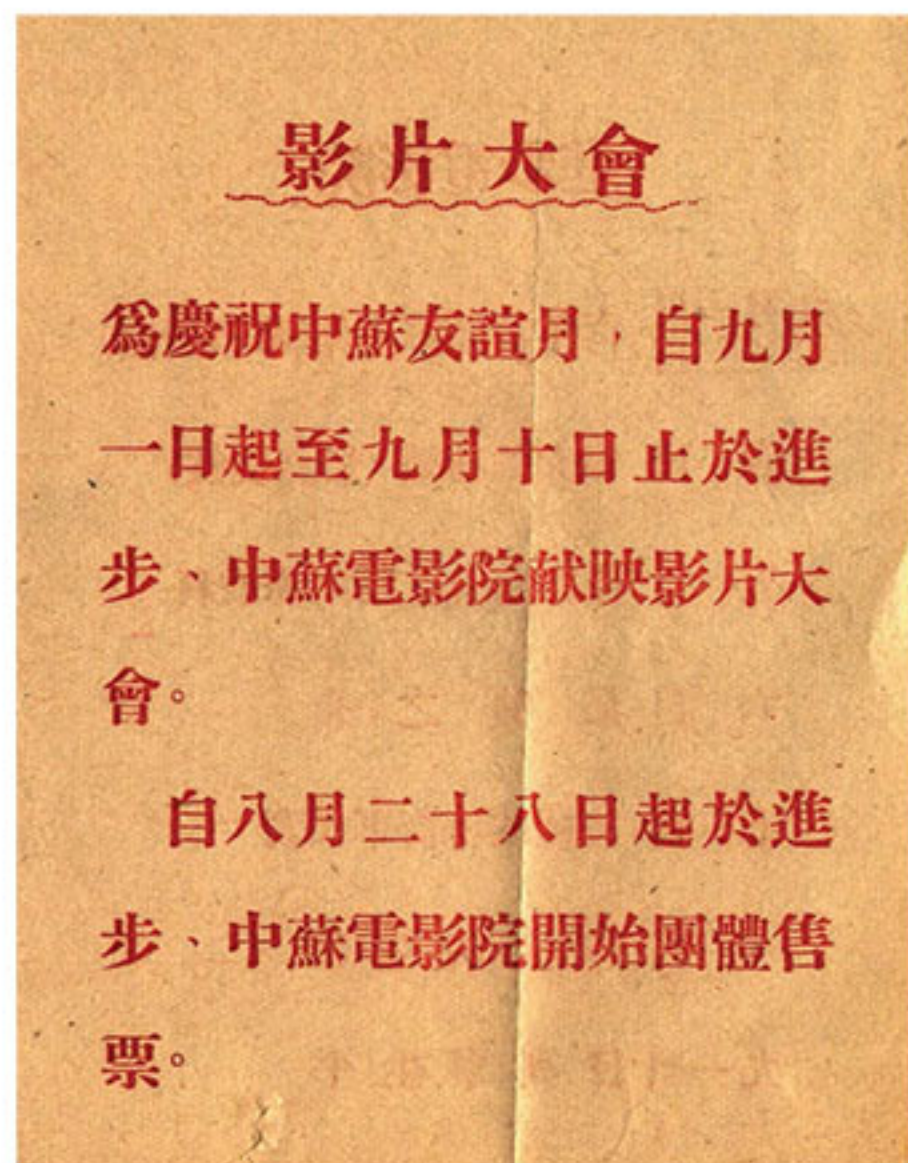 影片大會
爲慶祝中蘇友誼月，自九月
一日起至九月十日止於進
步、中蘇電影院献映影片大
會。
自八月二十八日起於進
步、中蘇電影院開始團體售
票。